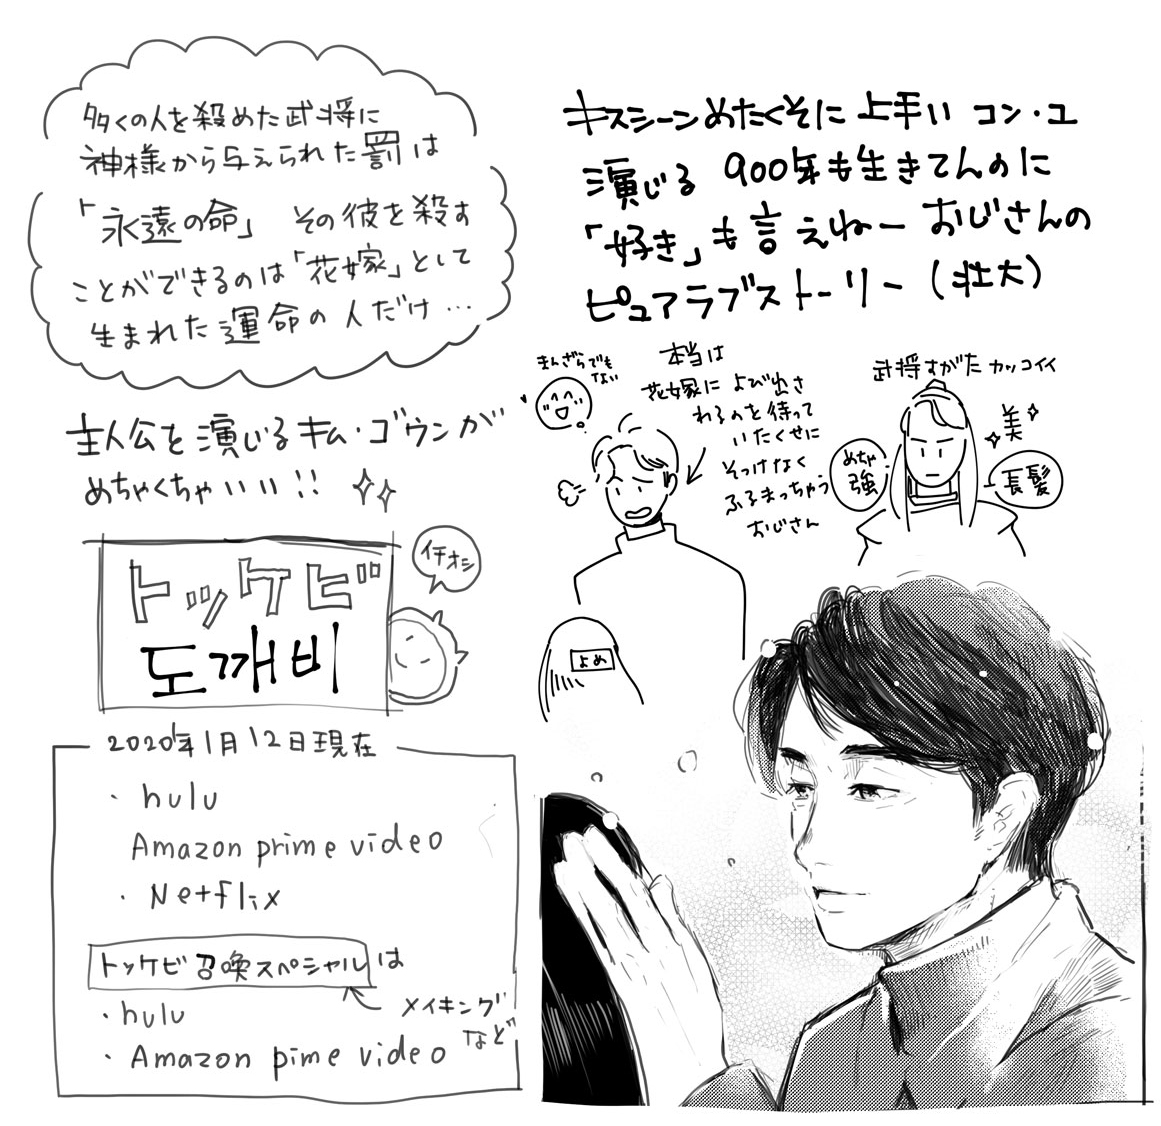 多くの人を殺めた武将に
神様から与えられた罰は
「永遠の命」 その彼を殺す
ことができるのは「花嫁」として
生まれた運命の人だけ…
主人公を演じるキム・ゴウンが
めちゃくちゃいい!!
トッケビ
도깨비
イチオシ
2020年1月12日現在
・hulu
Amazon prime video
・Netflix
トッケビ召喚スペシャルは
メイキング
など
・hulu
・Amazon pime video
キスシーンめたくそに上手い コン・ユ
演じる 900年も生きてんのに
「好き」も言えねー おじさんの
ピュアラブストーリー(壮大)
まんざらでも
ない
本当は
花嫁に よび出さ
れるのを待って
いたくせに
そっけなく
ふるまっちゃう
おじさん
よめ
武将すがた カッコイイ
美
めちゃ
強
長髪